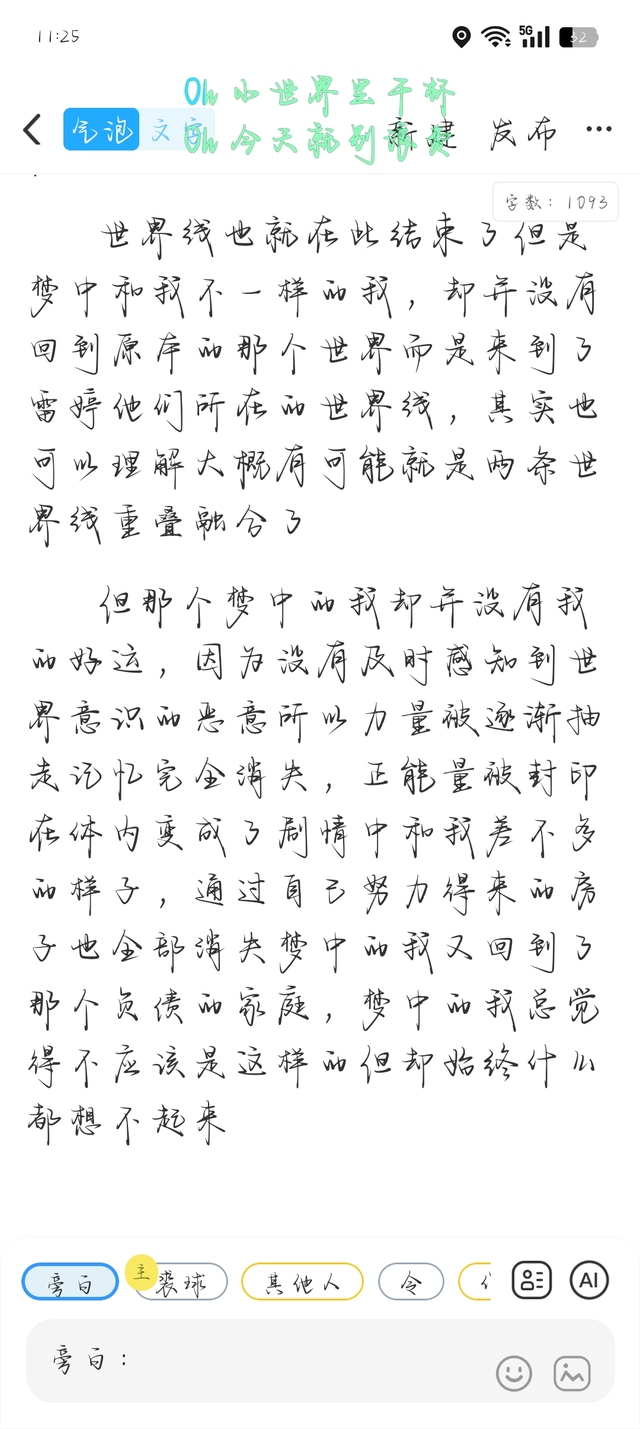 11:25
5G
32
Oh 小世界里干杯
Oh 今天就别浪费
气泡
文字
新建
发布
字数：1093
世界线也就在此结束了但是
梦中和我不一样的我，却并没有
回到原本的那个世界而是来到了
雷婷他们所在的世界线，其实也
可以理解大概有可能就是两条世
界线重叠融合了
但那个梦中的我却并没有我
的好运，因为没有及时感知到世
界意识的恶意所以力量被逐渐抽
走记忆完全消失，正能量被封印
在体内变成了剧情中和我差不多
的样子，通过自己努力得来的房
子也全部消失梦中的我又回到了
那个负债的家庭，梦中的我总觉
得不应该是这样的但却始终什么
都想不起来
旁白
主
裴球
其他人
令
AI
旁白：